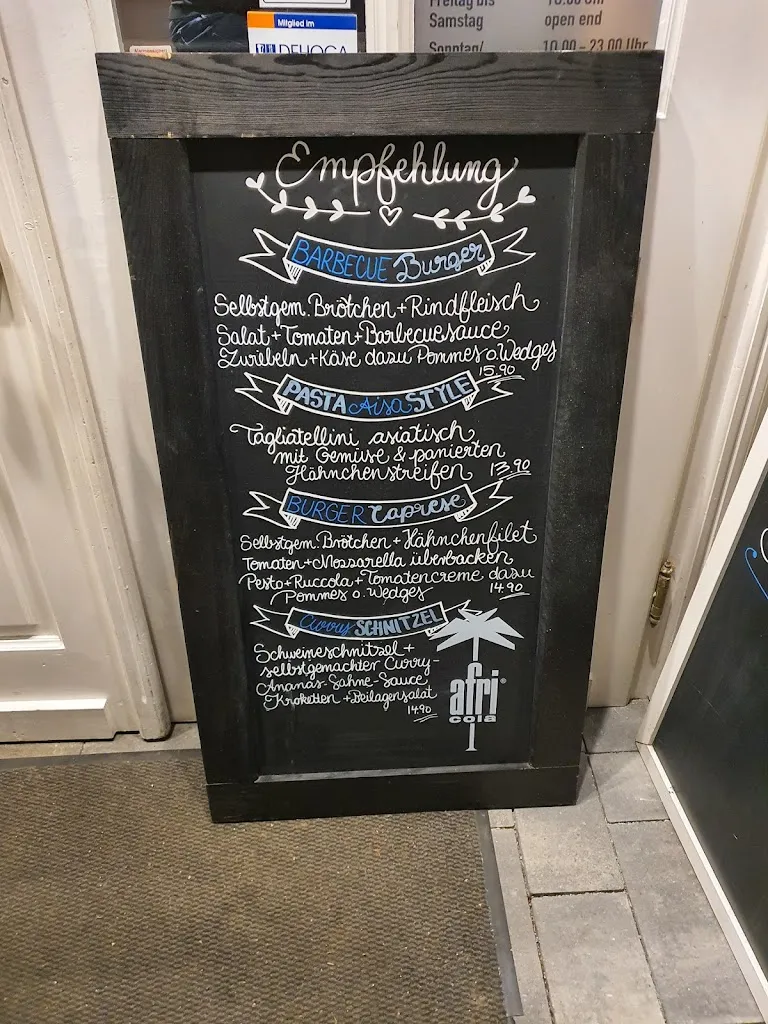 Mitglied im
DEHOGA
Freitag bis
Samstag open end
Sonntag/ 10.00 - 23.00 Uhr
Empfehlung
BARBECUE Burger
Selbstgem. Brötchen + Rindfleisch
Salat + Tomaten + Barbecuesauce
Zwiebeln + Käse dazu Pommes o. Wedges
15.90
PASTA Aisa STYLE
Tagliatellini asiatisch
mit Gemüse & panierten
Hähnchenstreifen 13.90
BURGER Caprese
Selbstgem. Brötchen + Hähnchenfilet
Tomaten + Mozzarella überbacken
Pesto + Ruccola + Tomatencreme dazu
Pommes o. Wedges 14.90
Curry SCHNITZEL
Schweineschnitzel +
selbstgemachter Curry-
Ananas-Sahne-Sauce
Kroketten + Beilagensalat
14.90
afri
cola